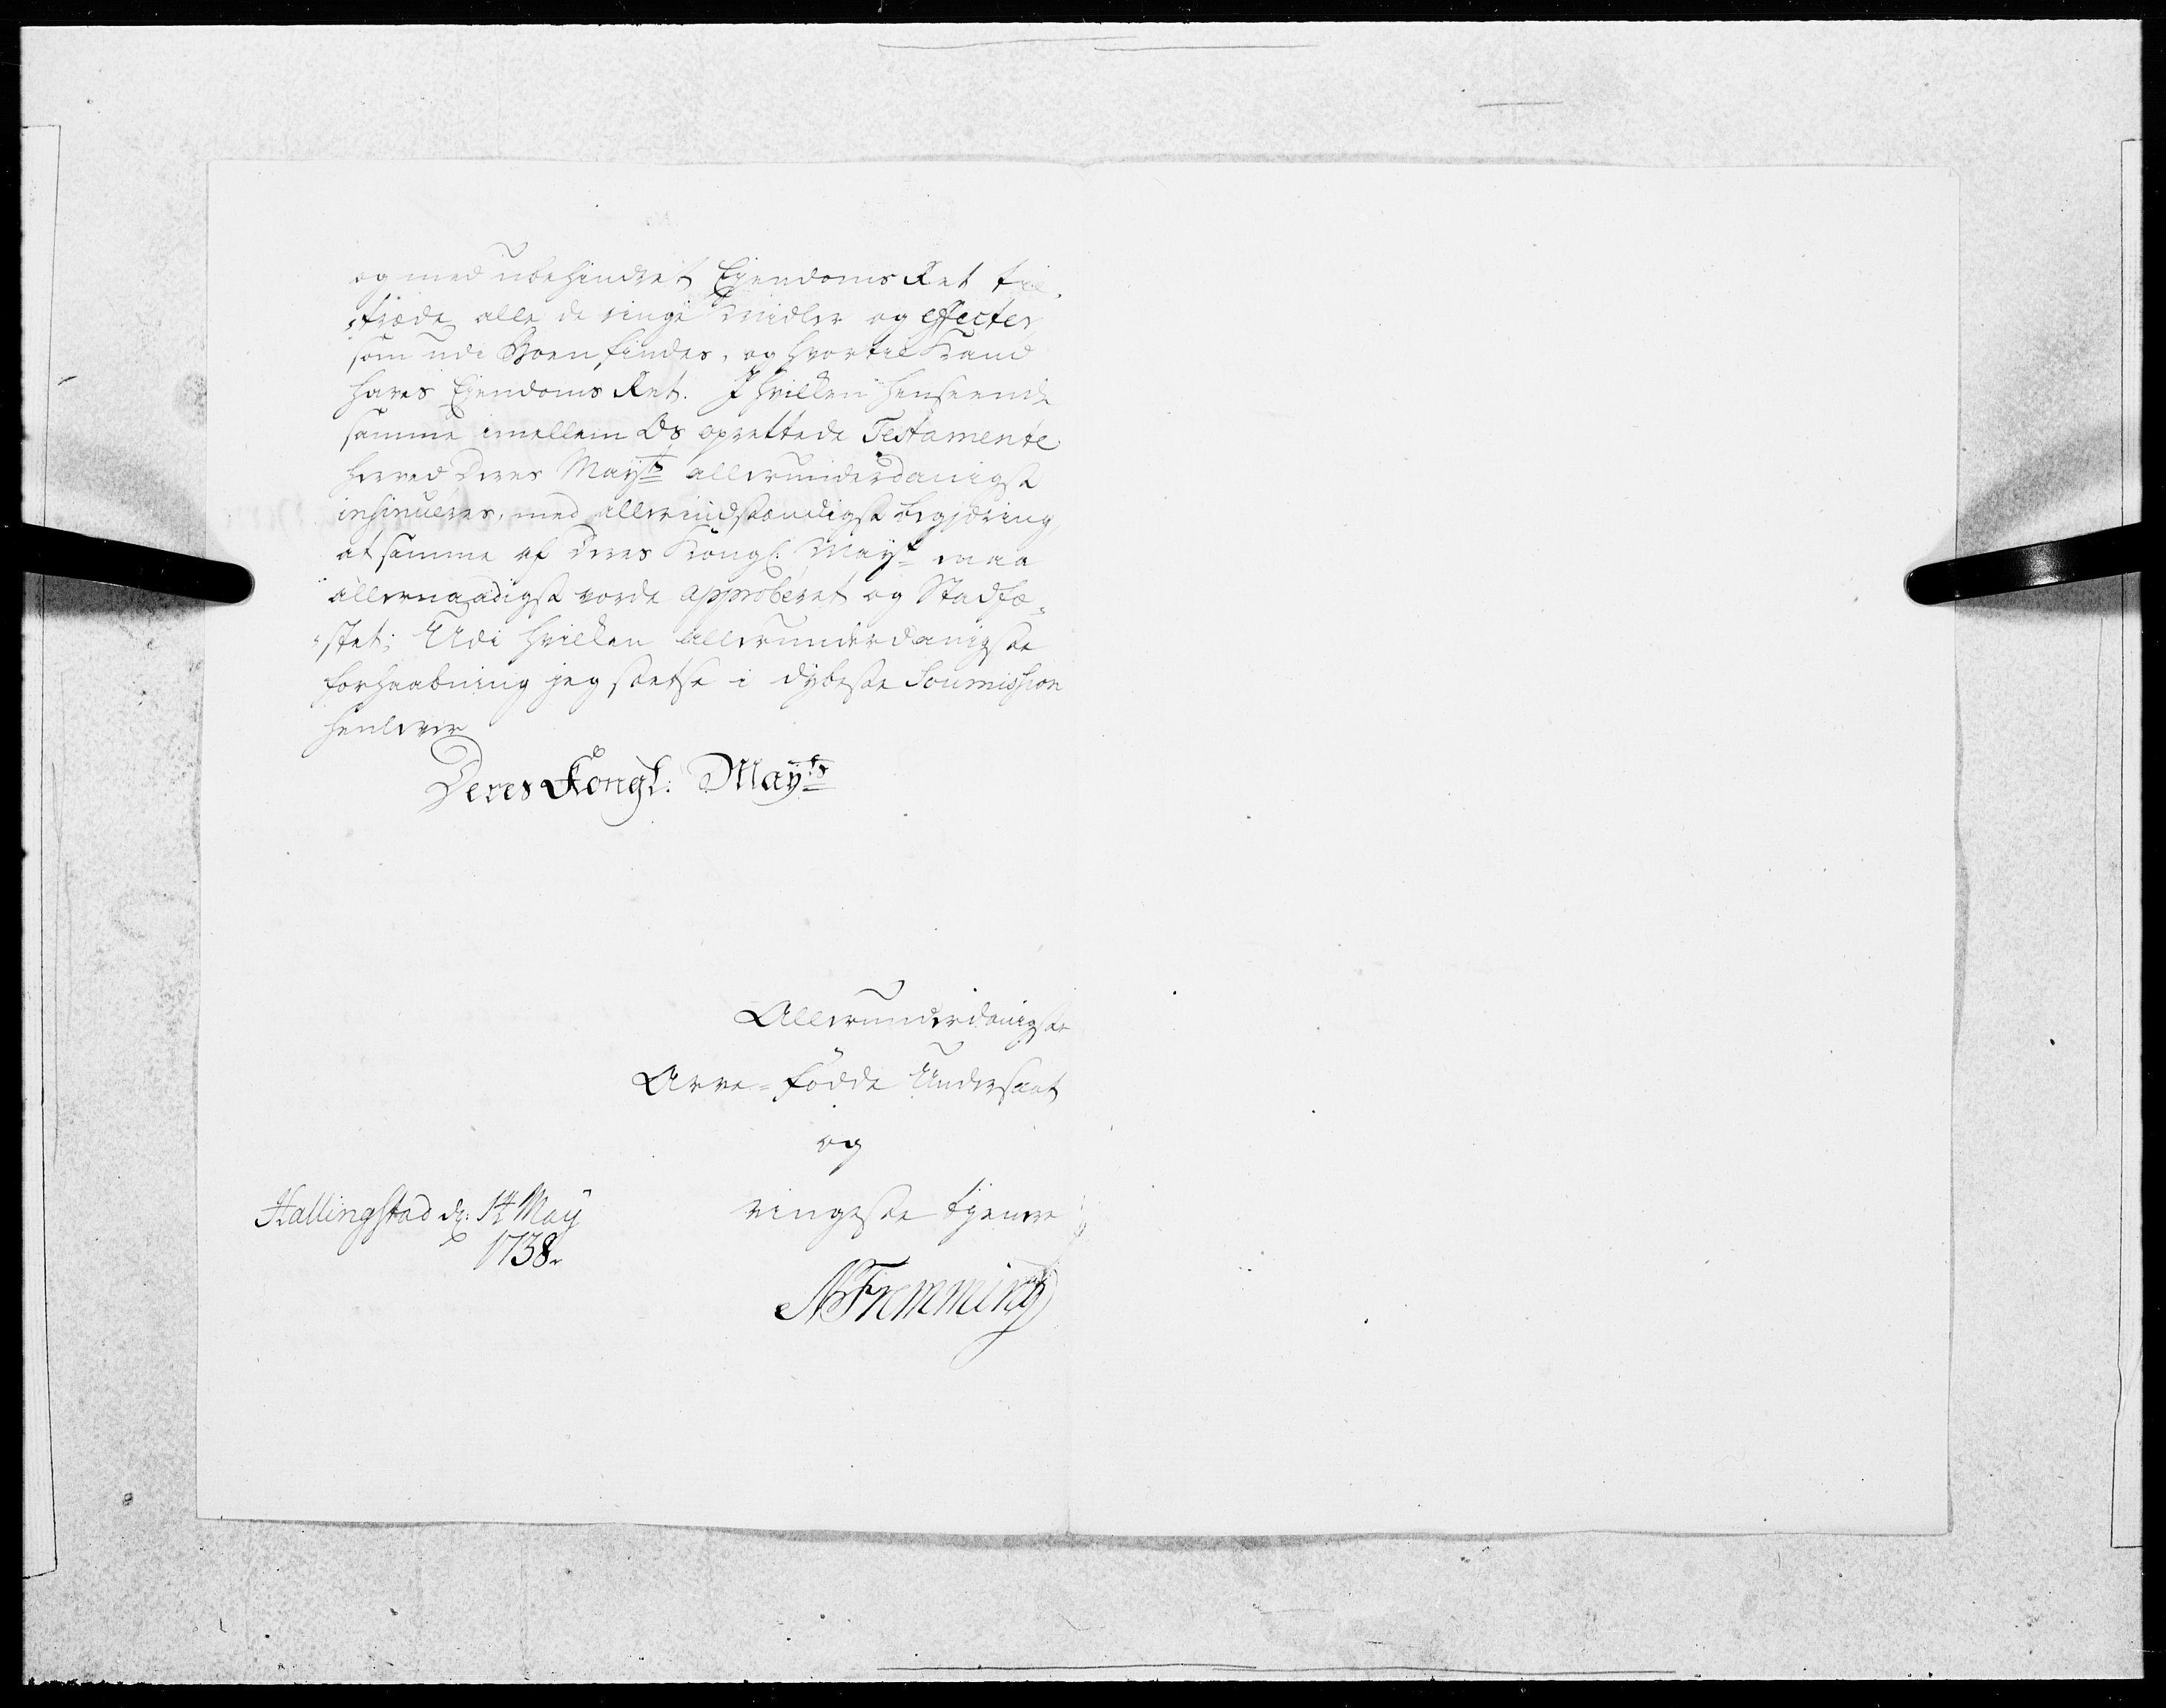 og med ubehindret Ejendoms Ret til,
,træde alle de ringe Midler og effecter,
som udi Boen findes, og hvortil Kand
haves Ejendoms Ret. I hvilken henseende
samme imellem Os oprettede Testamente
herved Deres Mayts allerunderdanigst
insinueres, med allerindstændigst begjæring,
at samme af Deres Kongl: Mayt maa
allernaadigst vorde approberet og Stadfæ-
-stet; Udi hvilken allerunderdanigste
forhaabning jeg stetse i dybeste Soumission
henlever
Deres Kongl: Mayts
Allerunderdanigste
Arve-fødde Undersaat
og
ringeste tjenere
Hallingstad dn: 14 May
1738.
Flemming